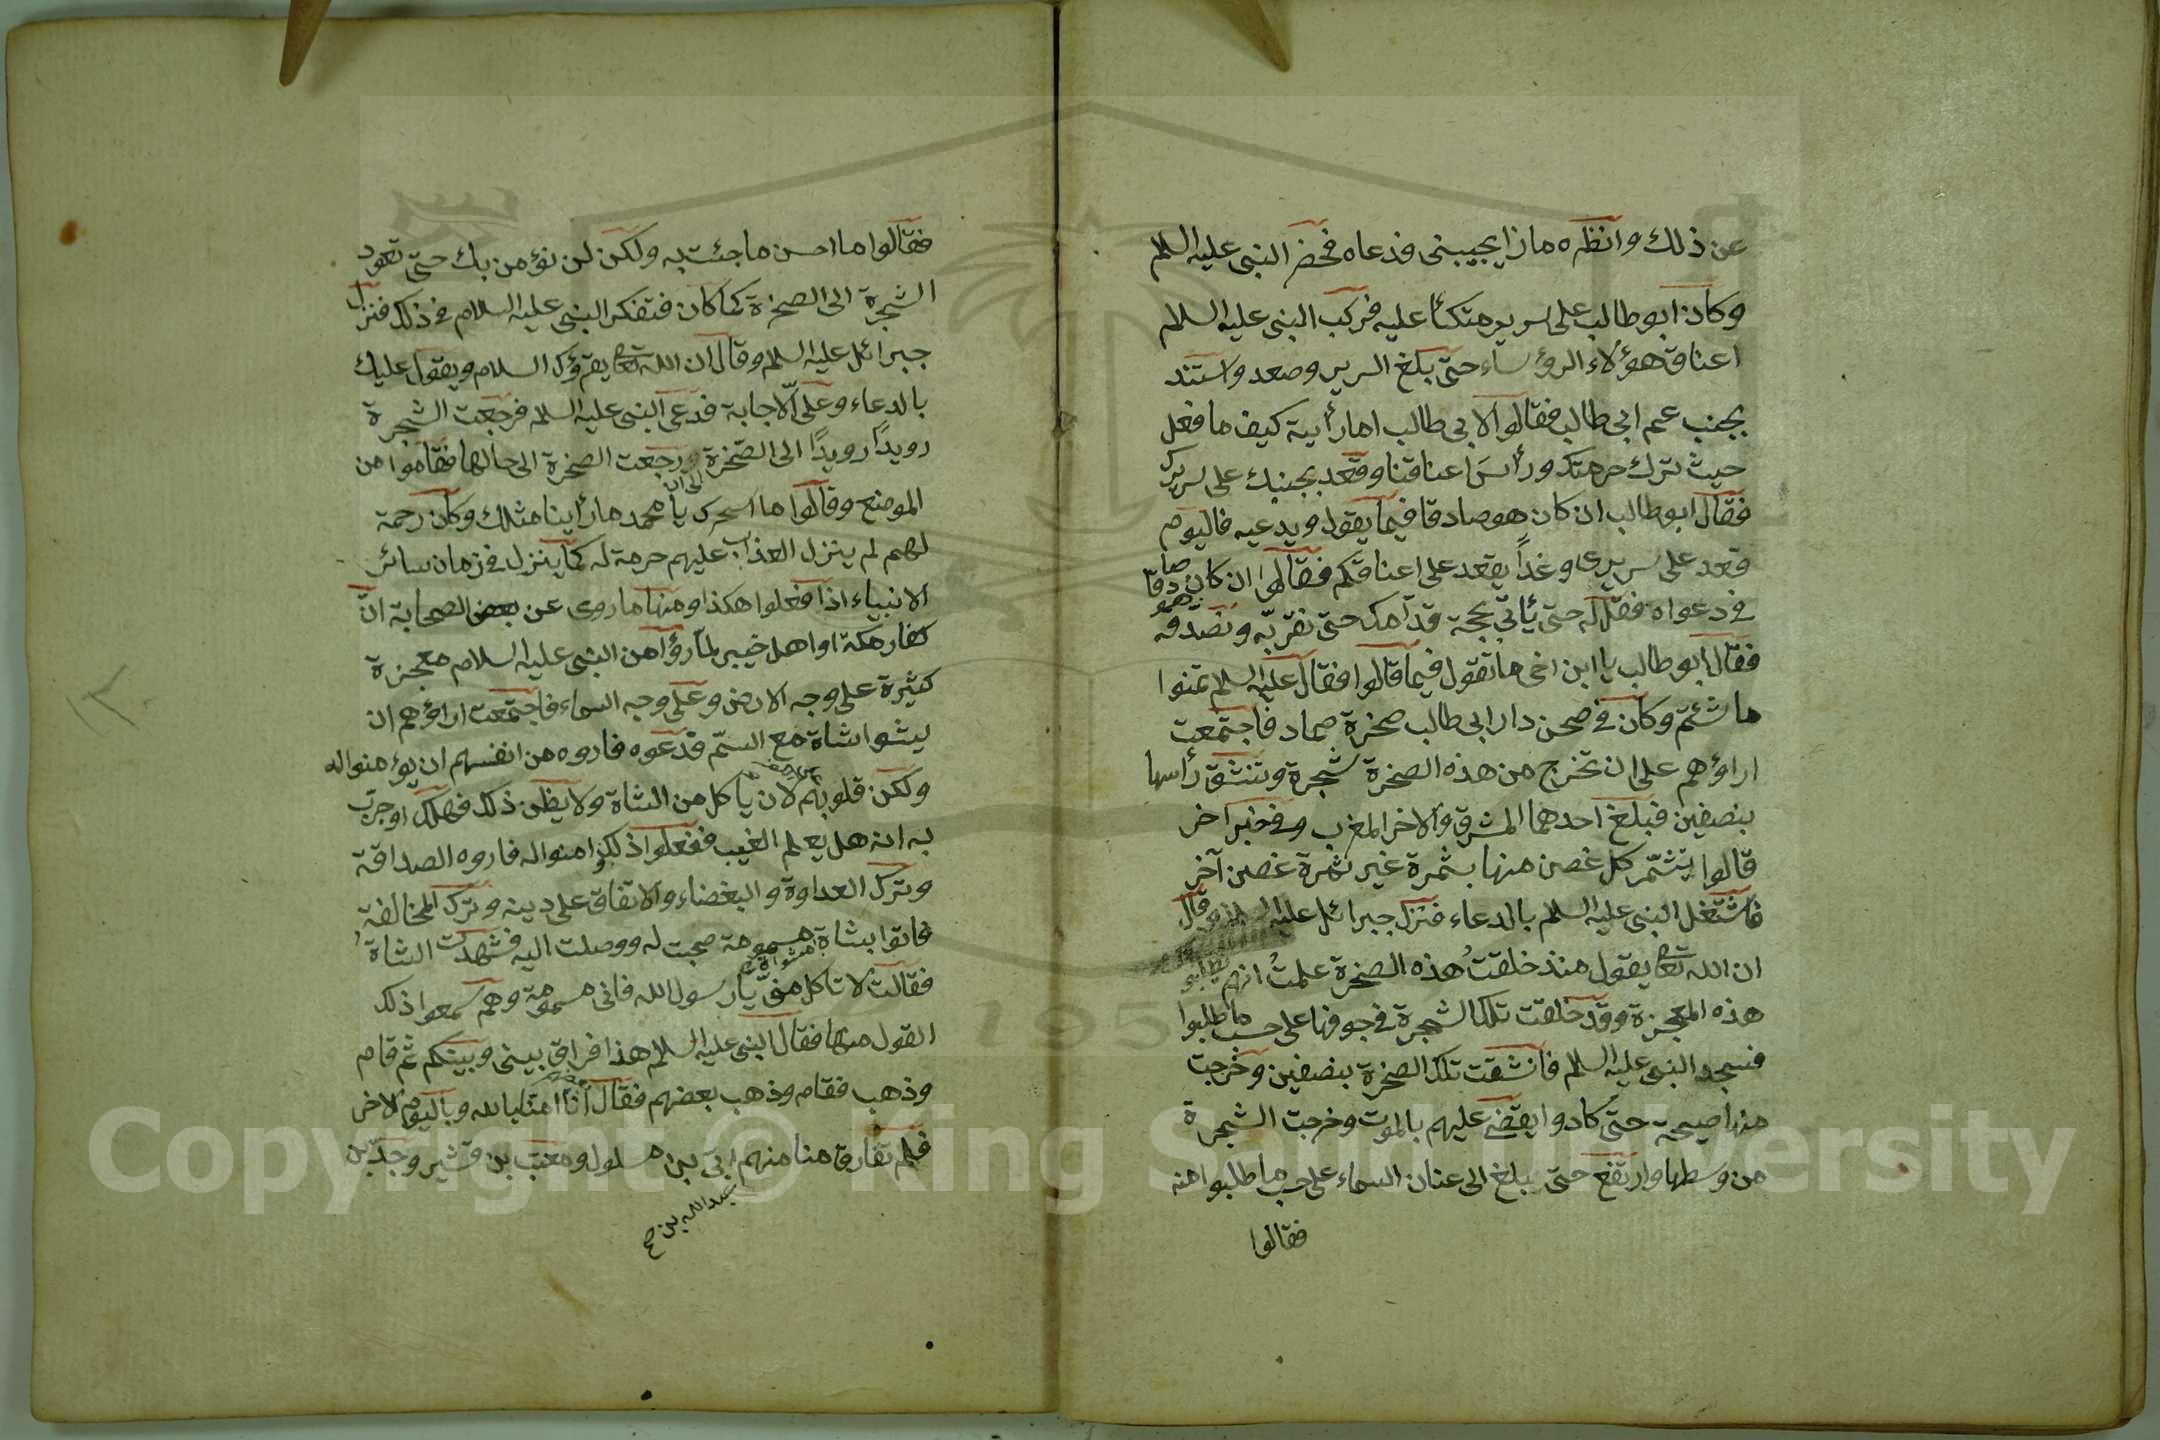 عن ذلك وانظره ماذا يجيبنى فدعاه فحضر النبى عليه السلام
وكان ابو طالب على سرير متكأ عليه فركب النبى عليه السلام
اعناق هؤلاء الرؤساء حتى بلغ السرير وصعد واستند
بجنب عم ابى طالب فقالوا لابى طالب اما رأيته كيف ما فعل
حيث ترك حرمتك ورأس اعناقنا وقعد بجنبك على سريرك
فقال ابو طالب ان كان هو صادقا فيما يقول ويدعيه فاليوم
قعد على سريرى وغدا يقعد على اعناقكم فقالوا ان كان صادقا
فى دعواه فقل له حتى يأتى بحجة قدامك حتى نقر به ونصدقه
فقال ابو طالب يا ابن اخى ما تقول فيما قالوا فقال عليه السلام تمنوا
ما شئتم وكان فى صحن دار ابى طالب صخرة صماد فاجتمعت
اراؤهم على ان تخرج من هذه الصخرة شجرة وتنشق رأسها
بنصفين فبلغ احدهما المشرق والاخر المغرب وفى خبر اخر
قالوا يتثمّر كل غصن منها بثمرة غير ثمرة غصن آخر
فاشتغل النبى عليه السلام بالدعاء فنزل جبرائل عليه السلام وقال
ان الله تعالى يقول منذ خلقتُ هذه الصخرة علمتُ انهم يطلبو
هذه المعجزة وقد خلقت تلك الشجرة فى جوفها على حسب ما طلبوا
فسجد النبى عليه السلام فانشقت تلك الصخرة بنصفين وخرجت
منها صيحة حتى كادوا يقضى عليهم بالموت وخرجت الشجرة
من وسطها وارتفع حتى يبلغ الى عنان السماء على حسب ما طلبوا منه
فقالوا
فقالوا ما احسن ما جئت به ولكن لن نؤمن بك حتى تعود
الشجرة الى الصخرة كما كان فتفكر النبى عليه السلام فى ذلك فنزل
جبرائل عليه السلام وقال ان الله تعالى يقرؤك السلام ويقول عليك
بالدعاء وعلىّ الاجابة فدعى النبى عليه السلام فرجعت الشجرة
رويدًا رويدًا الى الصخرة ورجعت الصخرة الى حالها فقاموا من
الموضع وقالوا ما اسحرك يا محمد ما رأينا مثلك وكان رحمة
لهم لم ينزل العذاب عليهم حرمة له كما ينزل فى زمان سائر
الانبياء اذا فعلوا هكذا ومنها ما روى عن بعض الصحابة انّ
كفار مكة او اهل خيبر لما رؤا من النبى عليه السلام معجزة
كثيرة على وجه الارض وعلى وجه السماء فاجتمعت اراؤهم ان
يشوا شاة مع السمّ فدعوه فاروه من انفسهم ان يؤمنوا له
ولكن قلوبهم لان ياكل من الشاة ولا يظن ذلك فهلك او جرت
به انه هل يعلم الغيب ففعلوا ذلك وامنوا له فاروه الصداقة
وترك العداوة والبغضاء والاتفاق على دينه وترك المخالفة
فاتوا بشاة مشواة مسمومة صحبت له ووصلت اليه فشهدت الشاة
فقالت لا تاكل منى يا رسول الله فانى مسمومة وهم سمعوا ذلك
القول منها فقال النبى عليه السلام هذا فراق بينى وبينكم ثم قام
وذهب فقام وذهب بعضهم فقال انا امنا بالله وباليوم الاخر
فلم تفارق منا منهم ابىّ بن سلول ومعتب بن قشير وجد بن
عبد الله بن صح
Copyright © King Saud University